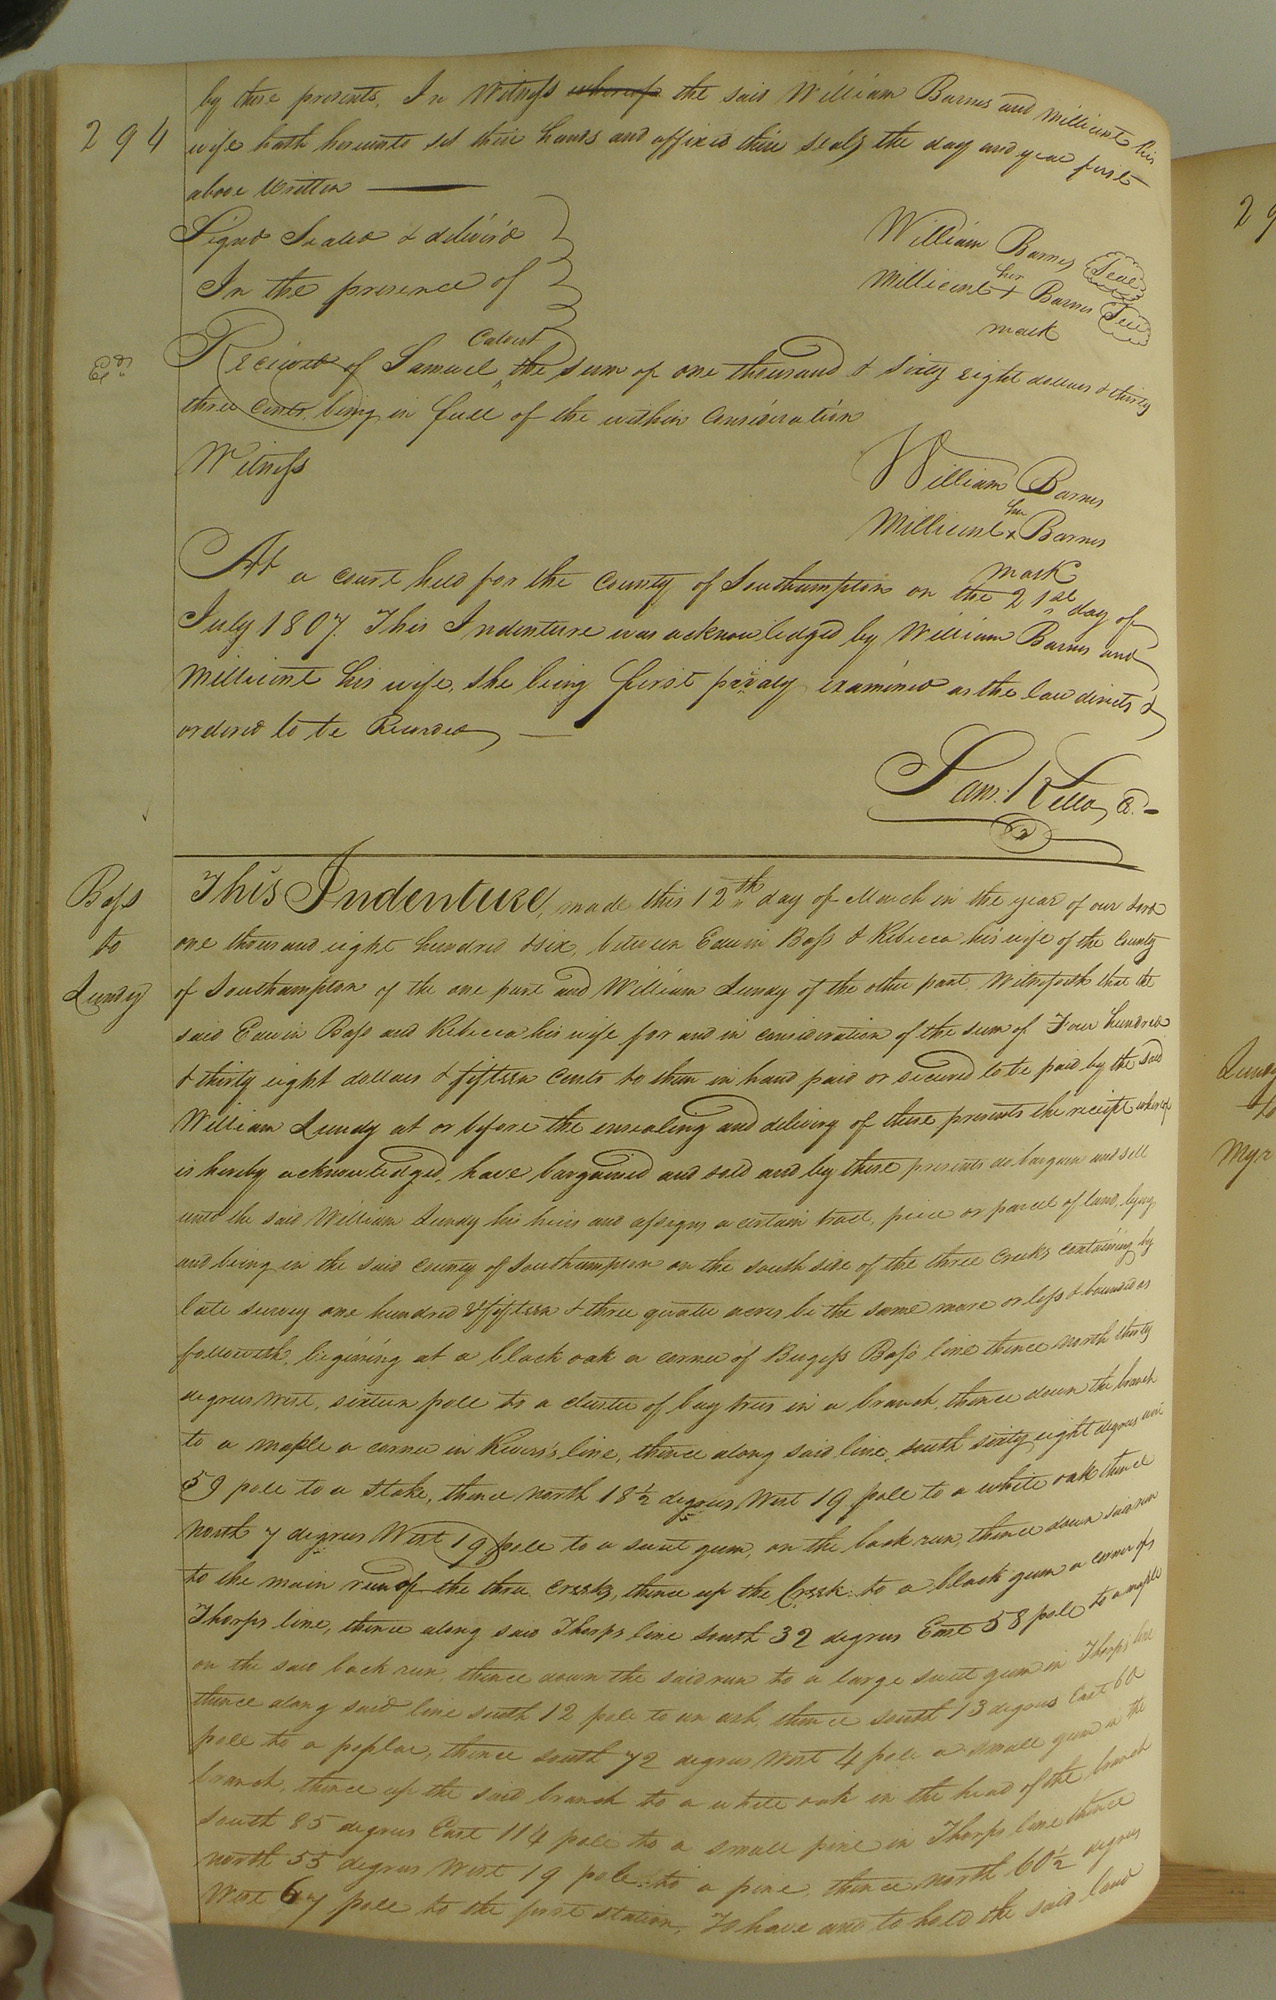 294
by these presents, In Witness whereof the said William Barnes and Millicent his
wife hath hereunto set their hands and affixed their seals the day and year first
above written
Signd Sealed & deliverd
In the presence of
William Barnes Seal
her
Millicent + Barnes Seal
mark
Calvert
Received of Samuel the sum of one thousand & sixty eight dollars & thirty
three Cents, being in full of the within consideration
Witness
William Barnes
her
Millicent x Barnes
mark
At a court held for the County of Southampton on the 21st day of
July 1807. This Indenture was acknowledged by William Barnes and
Millicent his wife, she being first privaly examined as the law directs &
ordered to be Recorded
Sam: Kello
Bass
to
Lundy
This Indenture, made this 12th day of March in the year of our Lord
one thousand eight hundred & six, between Edwin Bass & Rebecca his wife of the County
of Southampton of the one part and William Lundy of the other part Witnesseth that the
said Edwin Bass and Rebecca his wife for and in consideration of the sum of Four hundred
& thirty eight dollars & fifteen cents to them in hand paid or secured to be paid by the said
William Lundy at or before the ensealing and delivery of these presents the receipt whereof
is hereby acknowledged, have bargained and sold and by these presents do bargain and sell
unto the said William Lundy his heirs and assigns a certain tract, piece or parcel of land, lying
and being in the said county of Southampton on the south side of the three Creeks containing by
late survey one hundred & fifteen & three quarter acres be the same more or less & bounded as
followeth, begining at a black oak a corner of Bugess Bass's line thence North thirty
degrees West, sixteen pole to a cluster of bay trees in a branch, thence down the branch
to a maple a corner in Rivers's line, thence along said line south sixty eight degrees
59 pole to a Stake, thence North 18½ degrees West 19 pole to a white oak thence
North 7 degrees West 19 pole to a sweet gum, on the back run, thence down said run
to the main run of the three creeks, thence up the Creek to a black gum a corner of
Thorps line, thence along said Thorps line South 32 degrees East 58 pole to a maple
on the said back run, thence down the said run to a large sweet gum in Thorps line
thence along said line south 12 pole to an ash, thence south 13 degrees East 60
pole to a poplar, thence south 72 degrees West 4 pole a small gum in the
branch, thence up the said branch to a white oak in the head of the branch
south 85 degrees East 114 pole to a small pine in Thorps line thence
north 55 degrees West 19 pole to a pine, thence North 60½ degrees
West 67 pole to the first station, To have and to hold the said land
29
Lundy
to